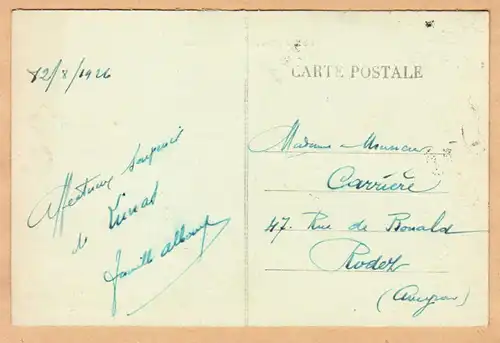 12/8/1926
Affectueux souvenir
de Lunas
famille
CARTE POSTALE
Madame Monsieur
Carrière
47 Rue de Bonald
Rodez
(Aveyron)